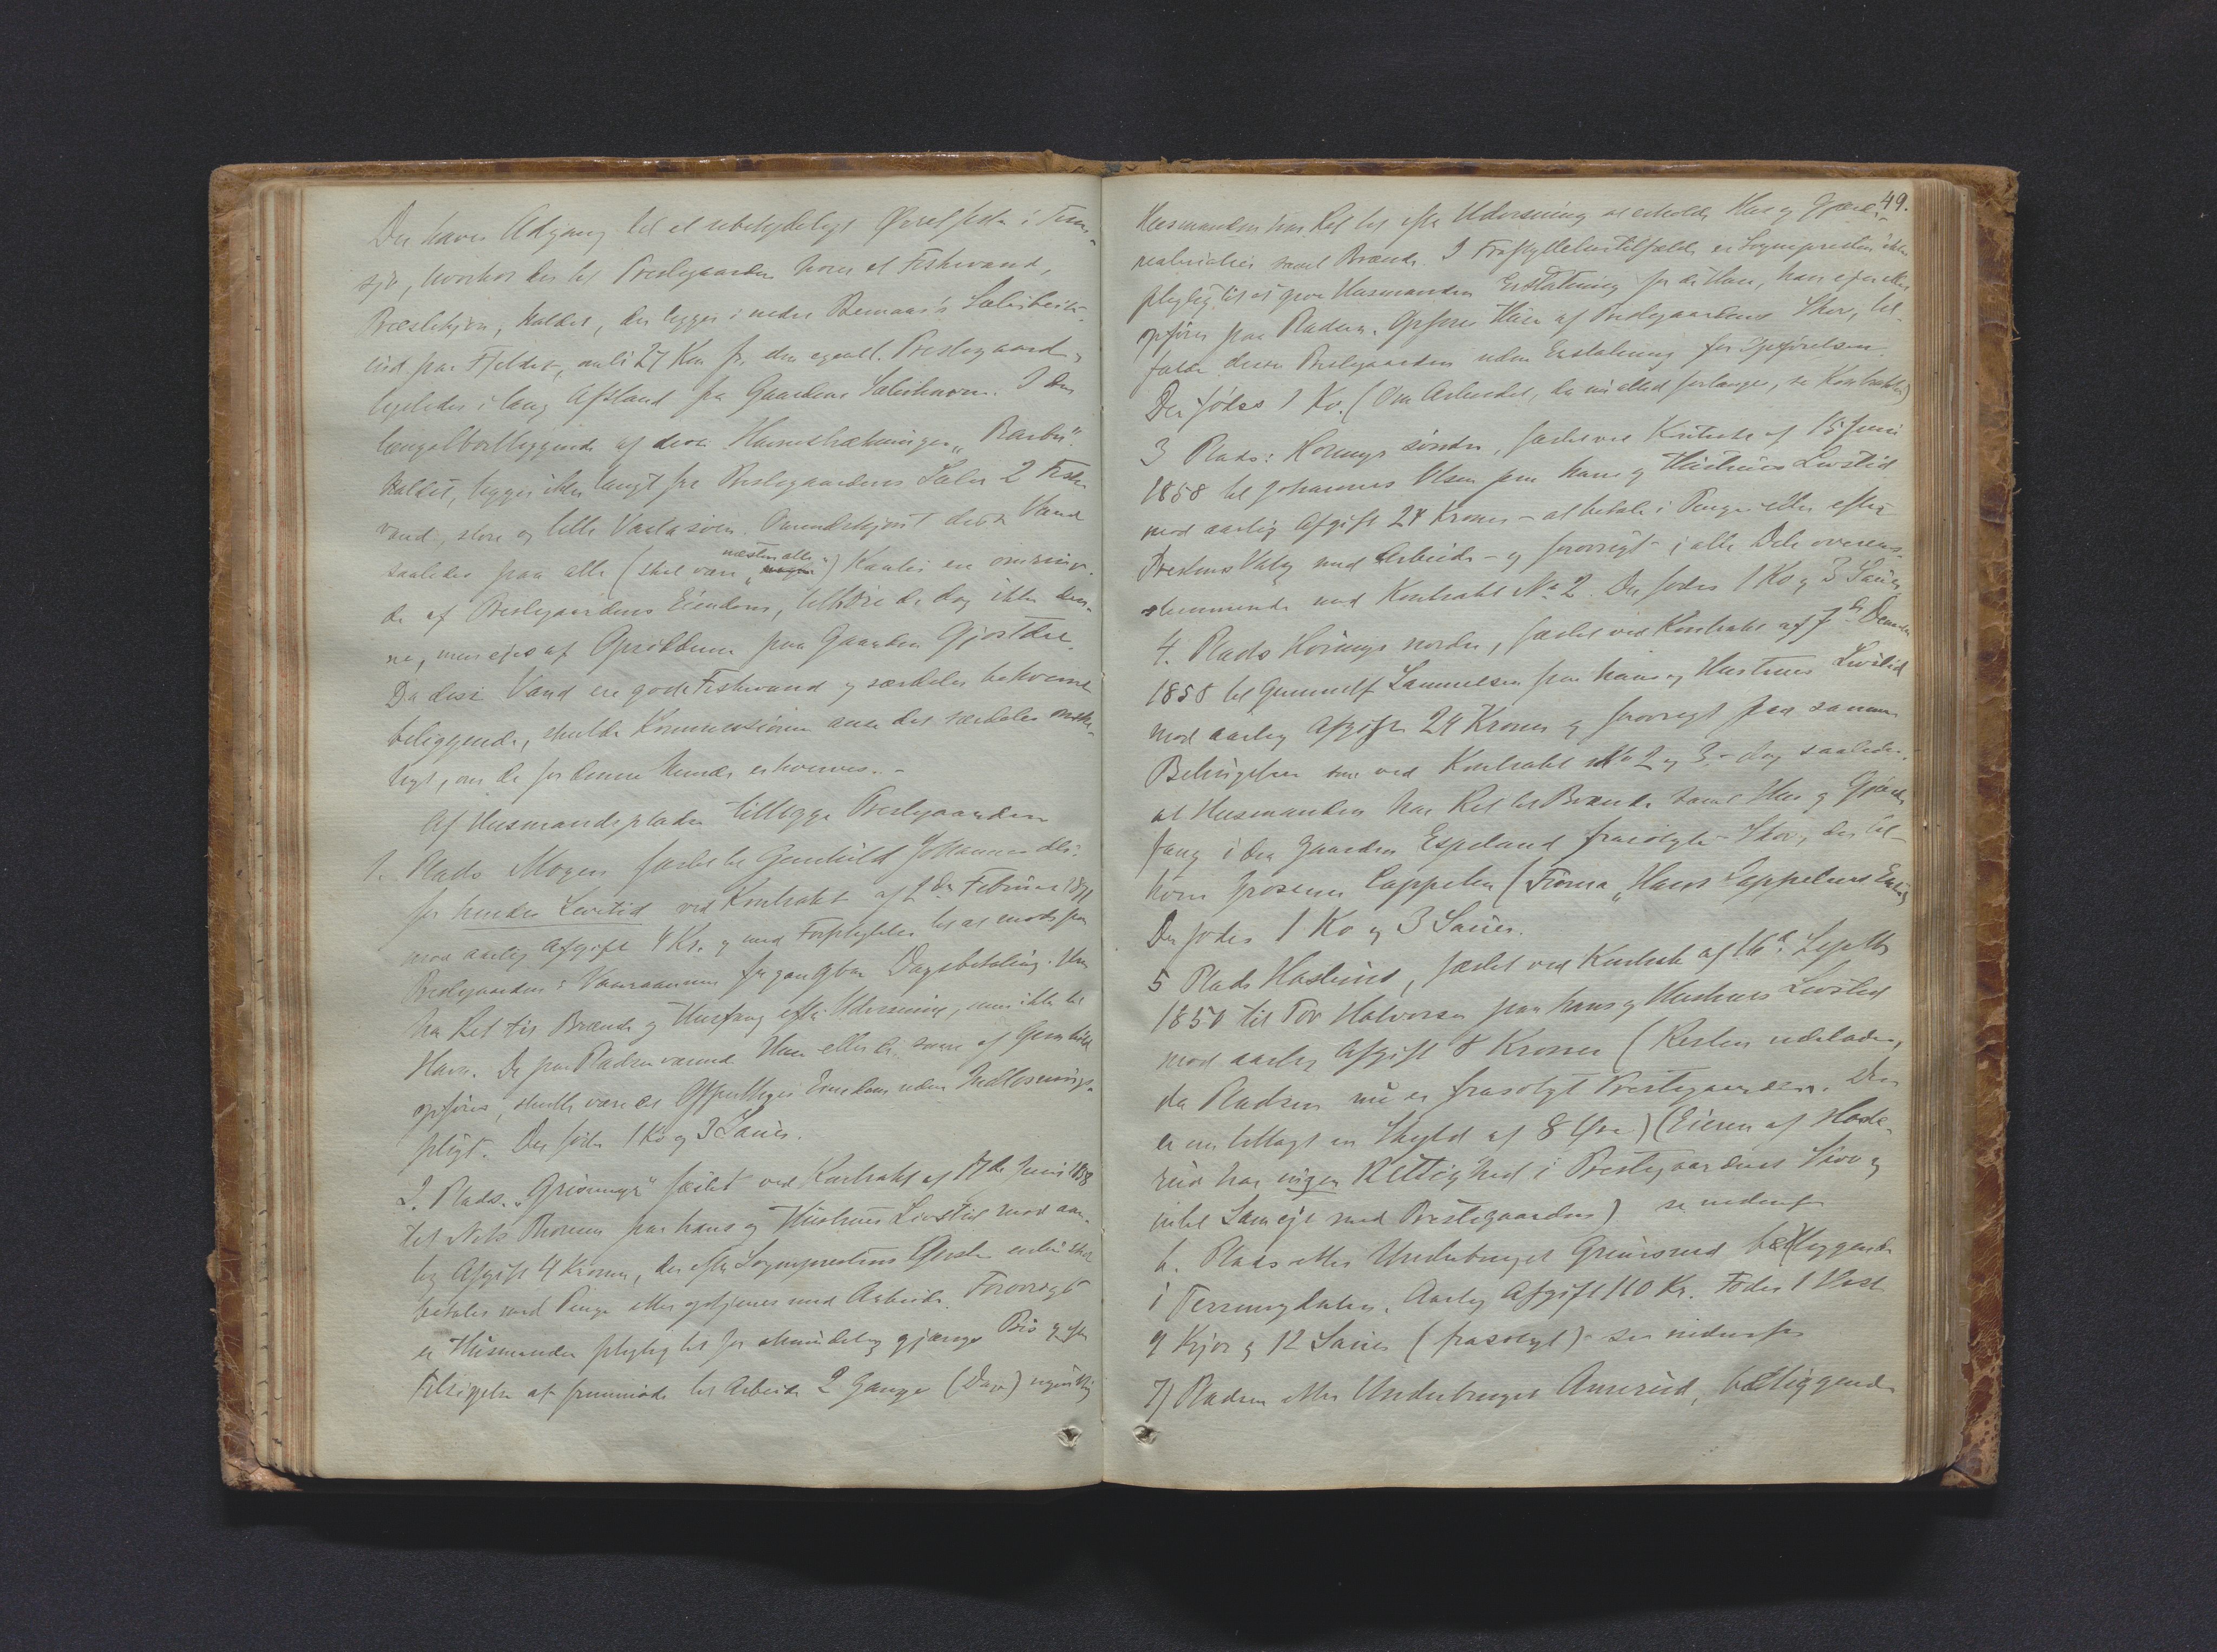 Der haves Adgang til et ubetydeligt Ørretfiske i
sjø, hvorhos der til Prestegaarden hører et Fiskevand,
Præstekjen, kaldet, der ligger i nedre
lid paa Fjeldet, omtr 27 Km fra den egentl. Prestegaard,
ligeledes i lang Afstand fra Gaardens Sæterhavn. I den
længstbortliggende af disse Havnestrækninger "Barbu"
kaldet, ligger ikke langt fra Prestegaardens Sæter 2 Fiske
vand, store og lille Vaslasøen. Omendskjønt disse Vand
saaledes paa alle (skal være "næsten alle") Kanter ere omringe-
de af Prestegaardens Eiendom, tilhøre de dog ikke den-
ne, men ejes af Opsidderne paa Gaarden
Da disse Vand ere gode Fiskevand og særdeles bekvemt
beliggende, skulde Kommissionen anse det særdeles ønske-
ligt, om de for denne kunde erhverves. -
Af Husmandspladse tilligge Prestegaarden
1. Plads Mogen fæstet til Gunhild Johannesdtr.
for hendes Levetid ved Kontrakt af 1 de Februar 1871
mod aarlig Afgift 4 Kr. og med Forpligtelse til at møde paa
Prestegaarden i Vaaraannen for gangbar Dagsbetaling. Hun
har Ret til Brænde og Husfang efter Udvisning, men ikke til
Havn. De paa Pladsen værende Huse eller de som af Gunhild
opføres, skulle være det Offentliges Eiendom uden Indløsnings-
pligt. Der fødes 1 Ko og 3 Sauer.
2. Plads. "Grismyr" fæstet ved Kontrakt af 17 de Juni 1858
til Nils Thorsen paa hans og Hustrues Livstid mod aar-
lig Afgift 4 Kroner, der efter Sogneprestens Ønske enten skal
betales med Penge eller aftjenes med Arbeide. Forøvrigt
er Husmanden pligtig til for almindelig gjængs Pris og efter
Tilsigelse at fremmøde til Arbeide 2 Gange (Dage) ugentlig
49.
Husmanden har Ret til efter Udvisning at erholde Hus og Gjerde-
materialier samt Brænde. I Fraflyttelsestilfælde er Sognepresten ikke
pligtig til at give Husmanden Erstatning for de Huse, han ejer eller
opfører paa Pladsen. Opføres Huse af Prestegaardens Skov, til-
falde disse Prestegaarden uden Erstatning for Opførelsen.
Der fødes 1 Ko. (Om Arbeidet, der nu alled forlanges, se Kontrakten)
3 Plads: Homyr søndre, fæstet ved Kontrakt af 15 Juni
1858 til Johannes Olsen paa hans og Hustrues Livstid
mod aarlig Afgift 24 Kroner - at betale i Penge eller efter
Prestens Valg med Arbeide - og forøvrigt i alle Dele overens-
stemmende med Kontrakt No 2. Der fødes 1 Ko og 3 Sauer
4. Plads Homyr nordre, fæstet ved Kontrakt af 7 de Decemb.
1858 til Gunnulf Samuelsen paa hans og Hustrues Livstid
mod aarlig Afgift 24 Kroner og forøvrigt paa samme
Betingelser som ved Kontrakt No 2 og 3 - dog saaledes
at Husmanden har Ret til Brænde samt Hus og Gjærde
fang i den Gaarden Espeland frasolgte Skov, der til-
hører Cappelen (Firma "Hans Cappelens Enke
Der fødes 1 Ko og 3 Sauer.
5 Plads Haslrud, fæstet ved Kontrakt af 16 d. Septbr
1850 til Tov Halvorsen paa hans og Hustrues Livstid
mod aarlig Afgift 8 Kroner (Resten udelades,
da Pladsen nu er frasolgt Prestegaarden. Den
er nu tillagt en Skyld af 8 Øre) (Eieren af Hasle-
rud har ingen Rettighed i Prestegaardens Skov og
intet Sameje med Prestegaarden) se nedenfor
6. Plads eller Underbruget Grimsrud beliggende
i. Aarlig Afgift 110 Kr. Fødes 1 Hest
9 Kjør og 12 Sauer (frasolgt) - se nedenfor
7) Pladsen eller Underbruget Amerud, beliggende